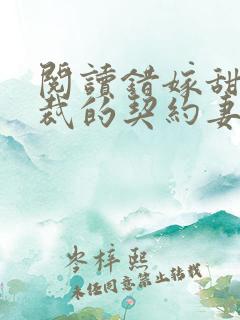 閱讀錯嫁甜
裁的契約妻
岑梓熙
未经同意禁止转载